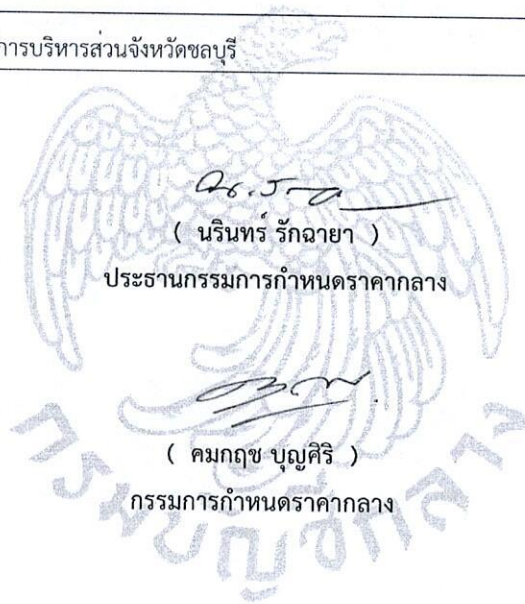 การบริหารส่วนจังหวัดชลบุรี
( นรินทร์ รักฉายา )
ประธานกรรมการกำหนดราคากลาง
( คมกฤช บุญศิริ )
กรรมการกำหนดราคากลาง
กรมบัญชีกลาง